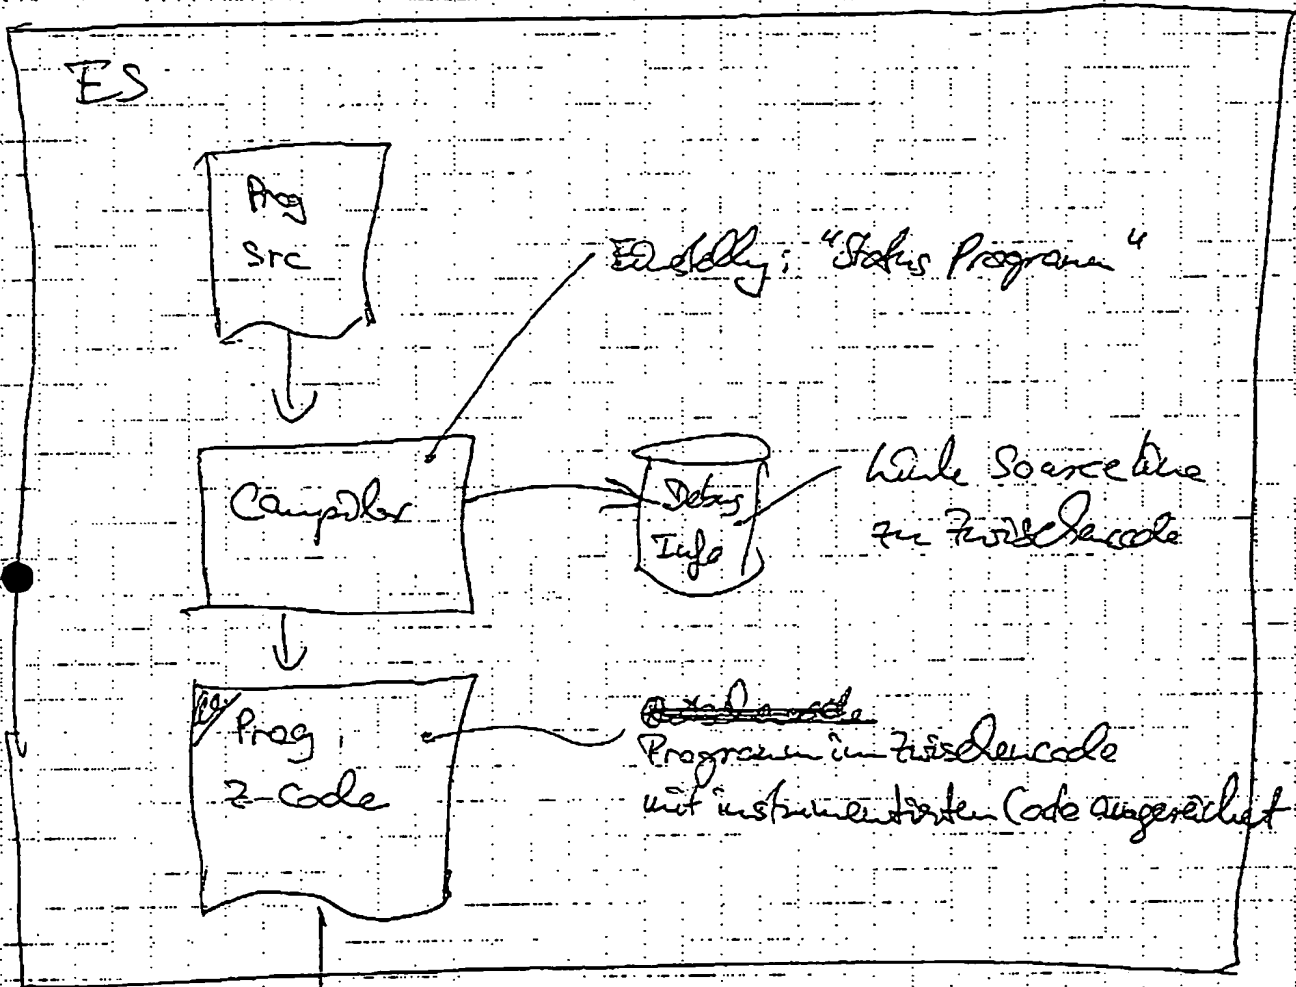 ES
Prog
Src
Einstellung: "Status Programm"
Compiler
Debug
Info
Source line
zu Zwischencode
Prog
Z-Code
Programm im Zwischencode
mit instrumentierten Code angereichert